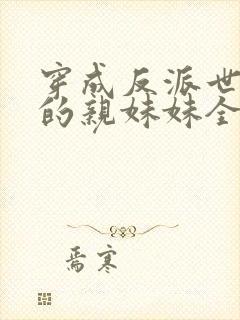 穿成反派世
的親妹妹全
焉寒